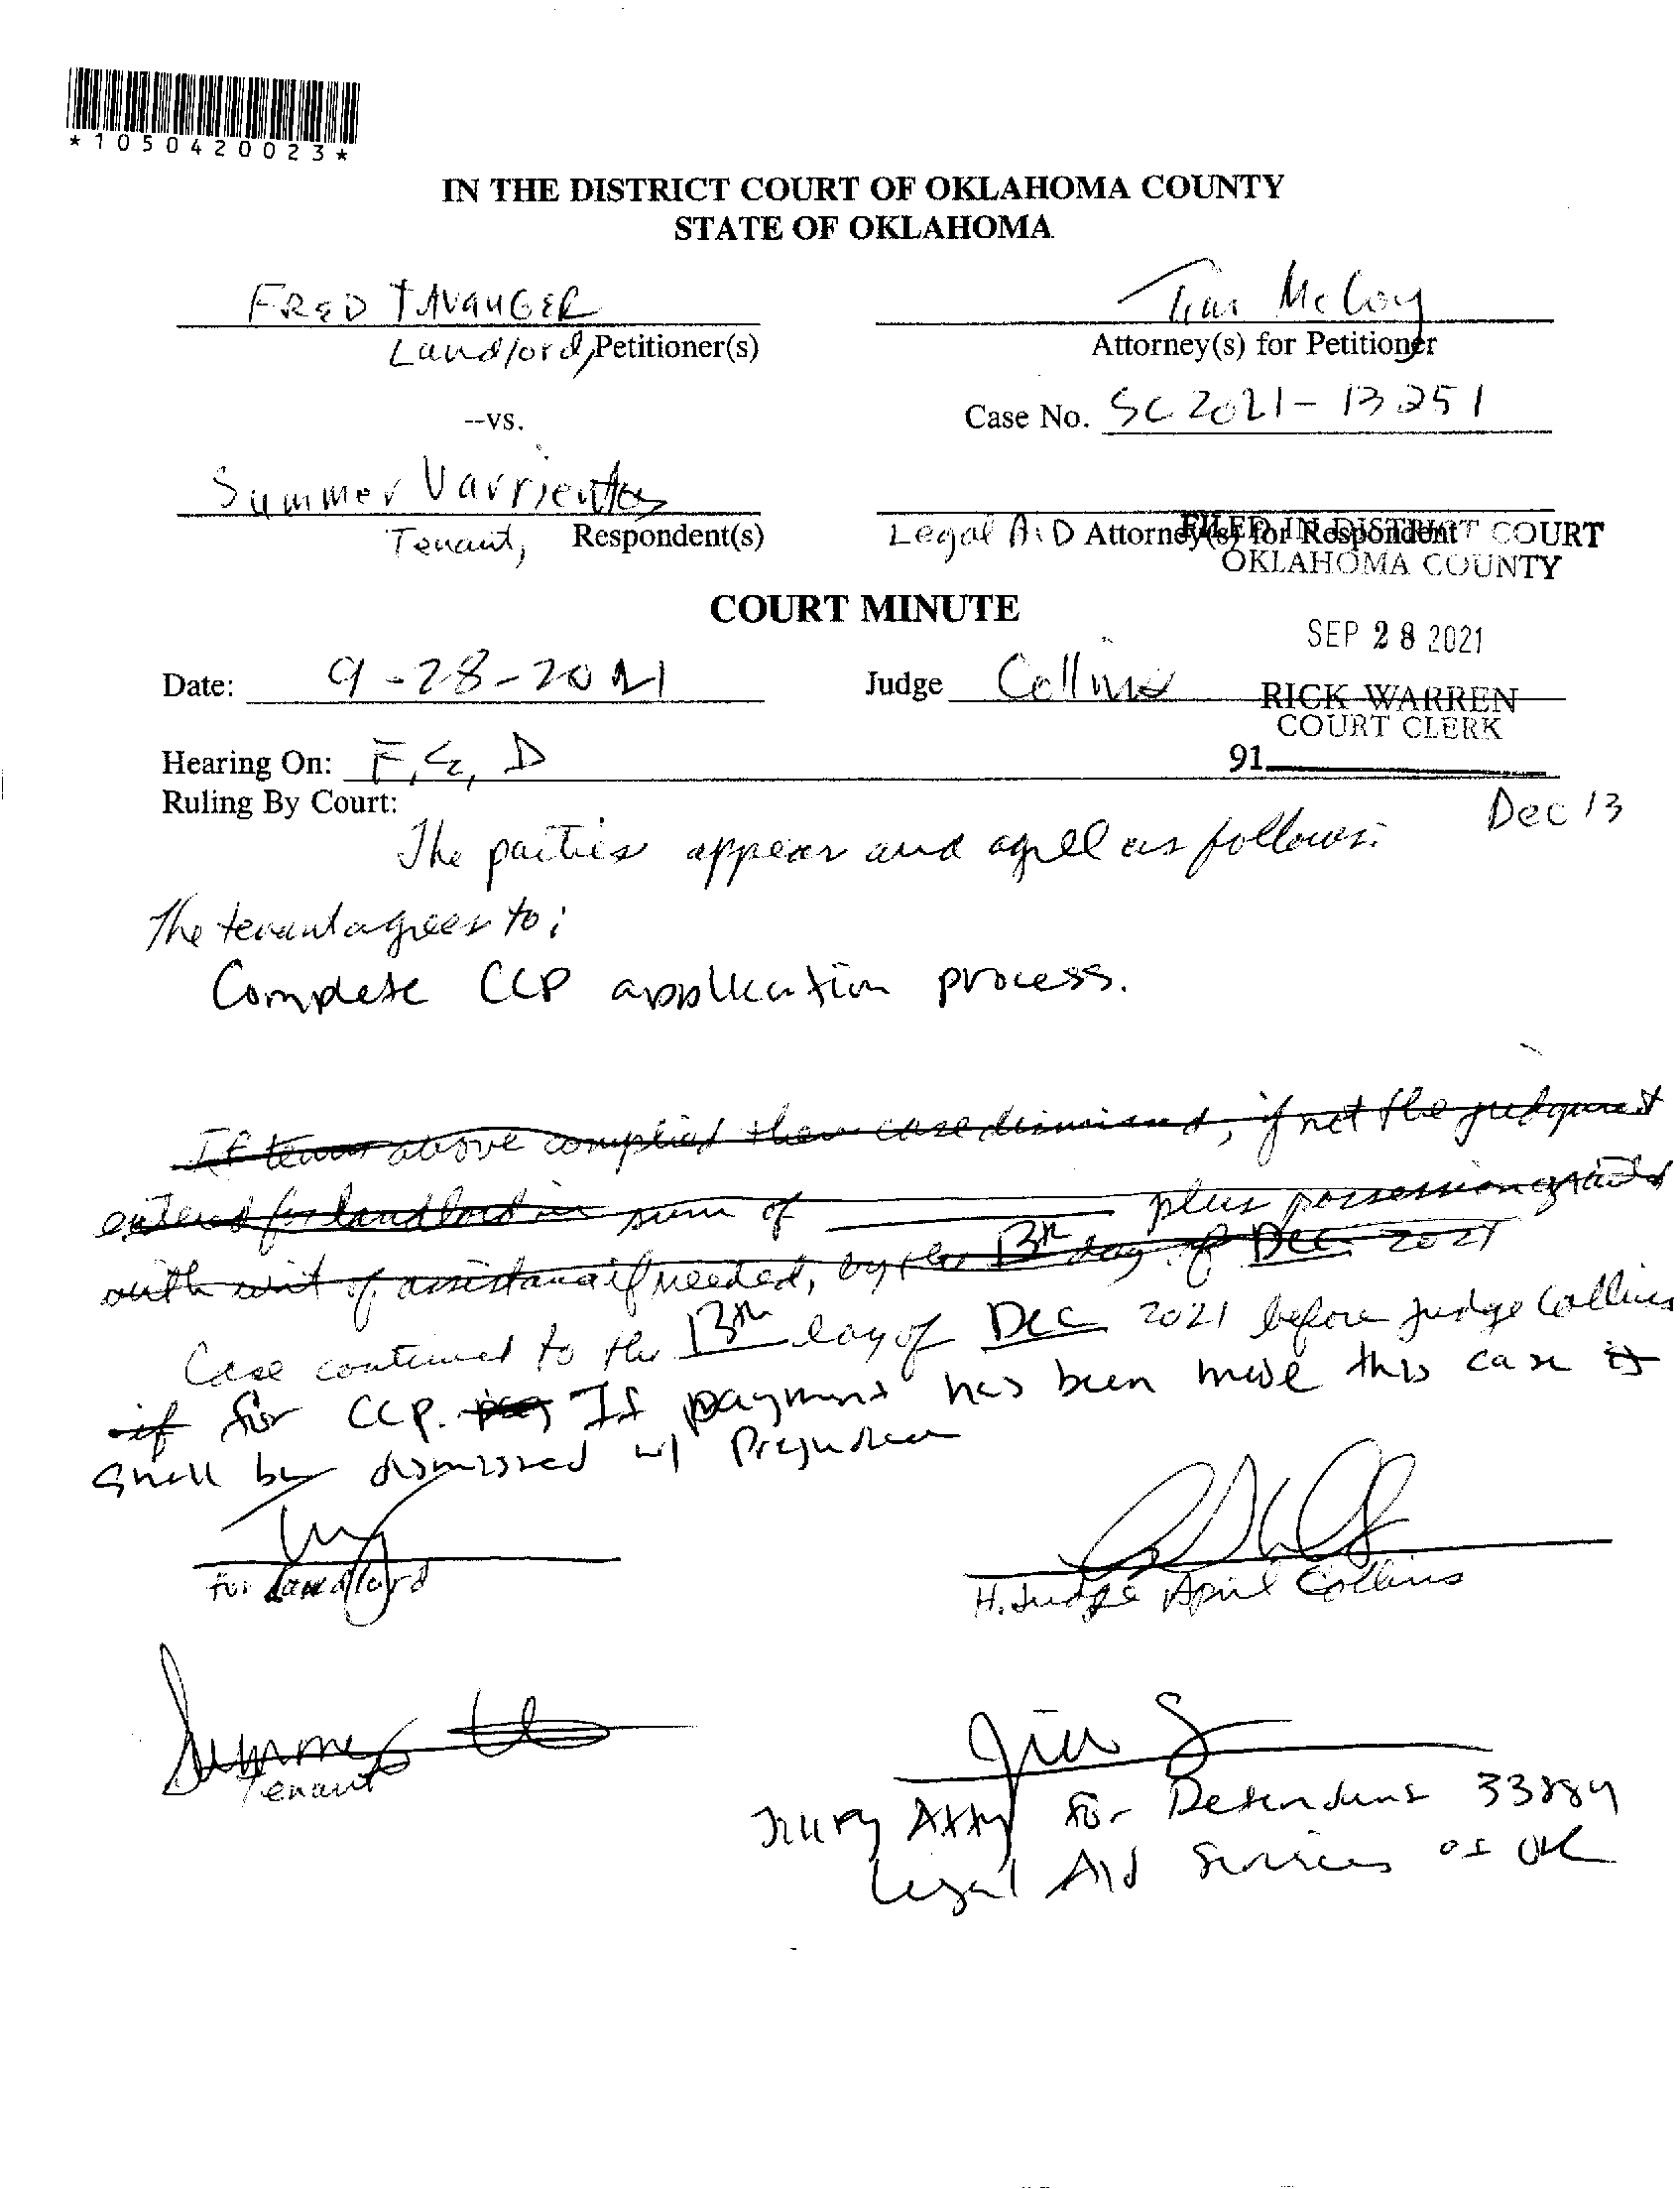 *1050420023*
IN THE DISTRICT COURT OF OKLAHOMA COUNTY
STATE OF OKLAHOMA
FRED TAVANGER
Landlord, Petitioner(s)
Tim McCoy
Attorney(s) for Petitioner
--vs.
Case No. SC 2021-13251
Summer Varrientos
Tenant, Respondent(s)
Legal AiD Attorney(s) for Respondent
FILED IN DISTRICT COURT
OKLAHOMA COUNTY
COURT MINUTE
SEP 28 2021
Date: 9-28-2021
Judge Collins
RICK WARREN
COURT CLERK
Hearing On: F, E, D
91
Ruling By Court:
Dec 13
The parties appear and agree as follows:
The tenant agrees to:
Complete CCP application process.
If tenant above complied then case dismissed, if not the judgment
entered for landlord in sum of plus possession granted
with writ of assistance if needed, by the 13th day of Dec 2021
Case continued to the 13th day of Dec 2021 before Judge Collins
if for CCP. pay If payment has been made this case is
shall be dismissed w/ Prejudice
For Landlord
H. Judge April Collins
Summer
Tenant
Jill
Atty for Defendant 33884
Legal Aid Services of OK